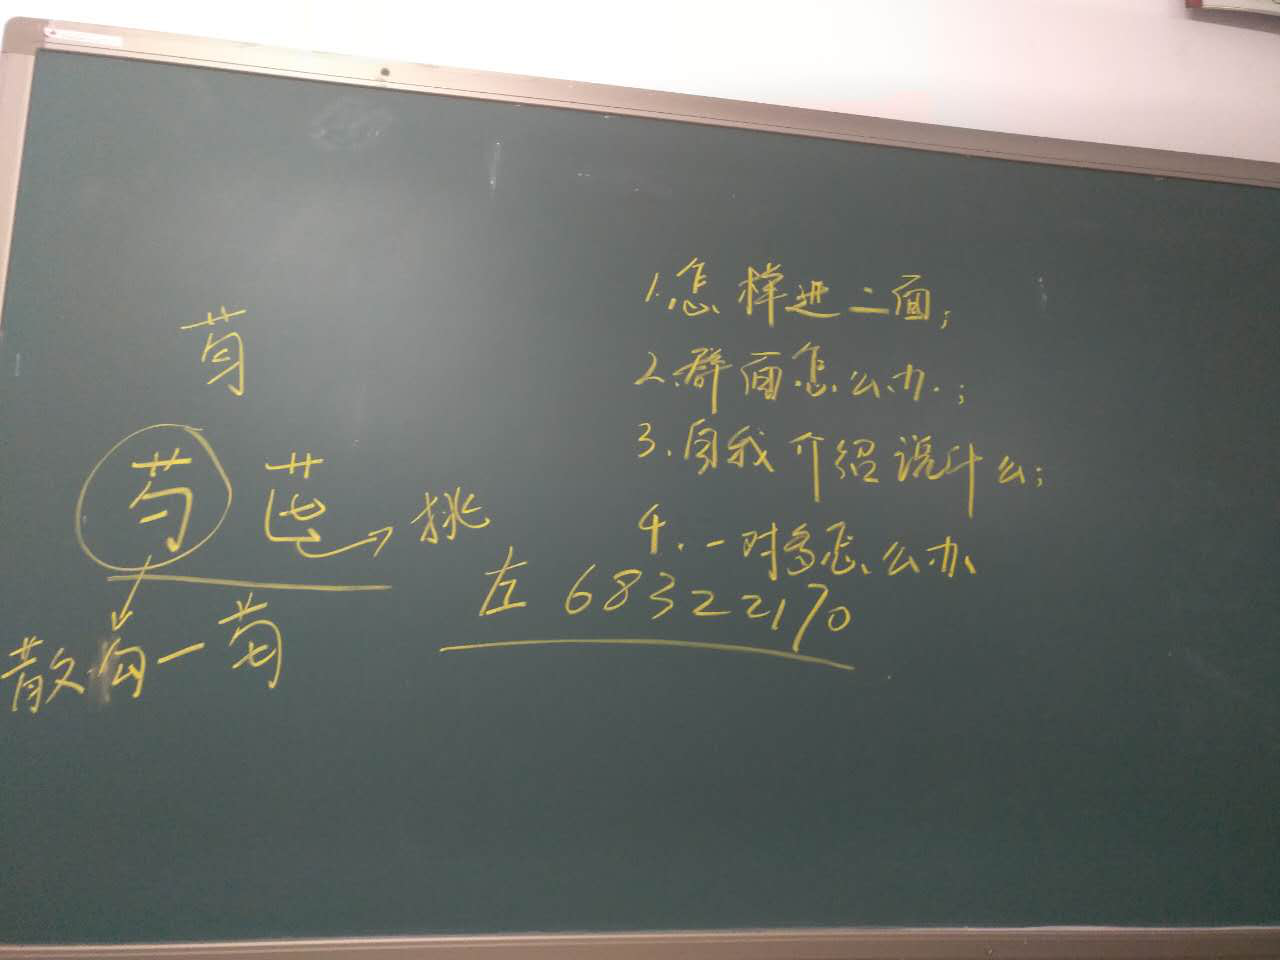 1.怎样进二面;
2.群面怎么办;
3.自我介绍说什么;
4.一对多怎么办
左 68322170
挑
散勾一